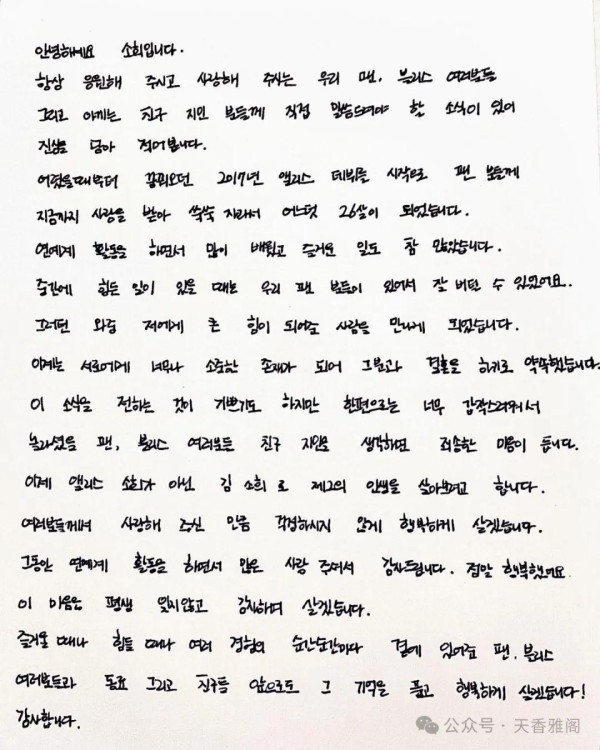 안녕하세요 소희입니다.
항상 응원해 주시고 사랑해 주시는 우리 팬, 블리스 여러분들
그리고 아끼는 친구 지인 분들께 직접 말씀드려야 할 소식이 있어
진심을 담아 적어봅니다.
어렸을때부터 꿈꿔오던 2017년 앨리스 데뷔를 시작으로 팬 분들께
지금까지 사랑을 받아 쑥쑥 자라서 어느덧 26살이 되었습니다.
연예계 활동을 하면서 많이 배웠고 즐거운 일도 참 많았습니다.
중간에 힘든 일이 있을 때는 우리 팬 분들이 있어서 잘 버틸 수 있었어요.
그러던 와중 저에게 큰 힘이 되어준 사람을 만나게 되었습니다.
이제는 서로에게 너무나 소중한 존재가 되어 그분과 결혼을 하기로 약속했습니다.
이 소식을 전하는 것이 기쁘기도 하지만 한편으로는 너무 갑작스러워서
놀라셨을 팬, 블리스 여러분들 친구 지인을 생각하면 죄송한 마음이 듭니다.
이제 앨리스 소희가 아닌 김소희로 제2의 인생을 살아보려고 합니다.
여러분들께서 사랑해 주신 만큼 걱정하시지 않게 행복하게 살겠습니다.
그동안 연예계 활동을 하면서 많은 사랑 주셔서 감사드립니다. 정말 행복했어요.
이 마음은 평생 잊지않고 감사하며 살겠습니다.
즐거울 때나 힘들 때나 여러 경험의 순간순간마다 곁에 있어준 팬, 블리스
여러분들과 동료 그리고 친구들 앞으로도 그 기억을 품고 행복하게 살겠습니다!
감사합니다.
公众号 · 天香雅阁